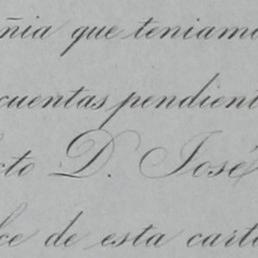 ñia que teniamo
cuentas pendient
cto D. José
ce de esta carta